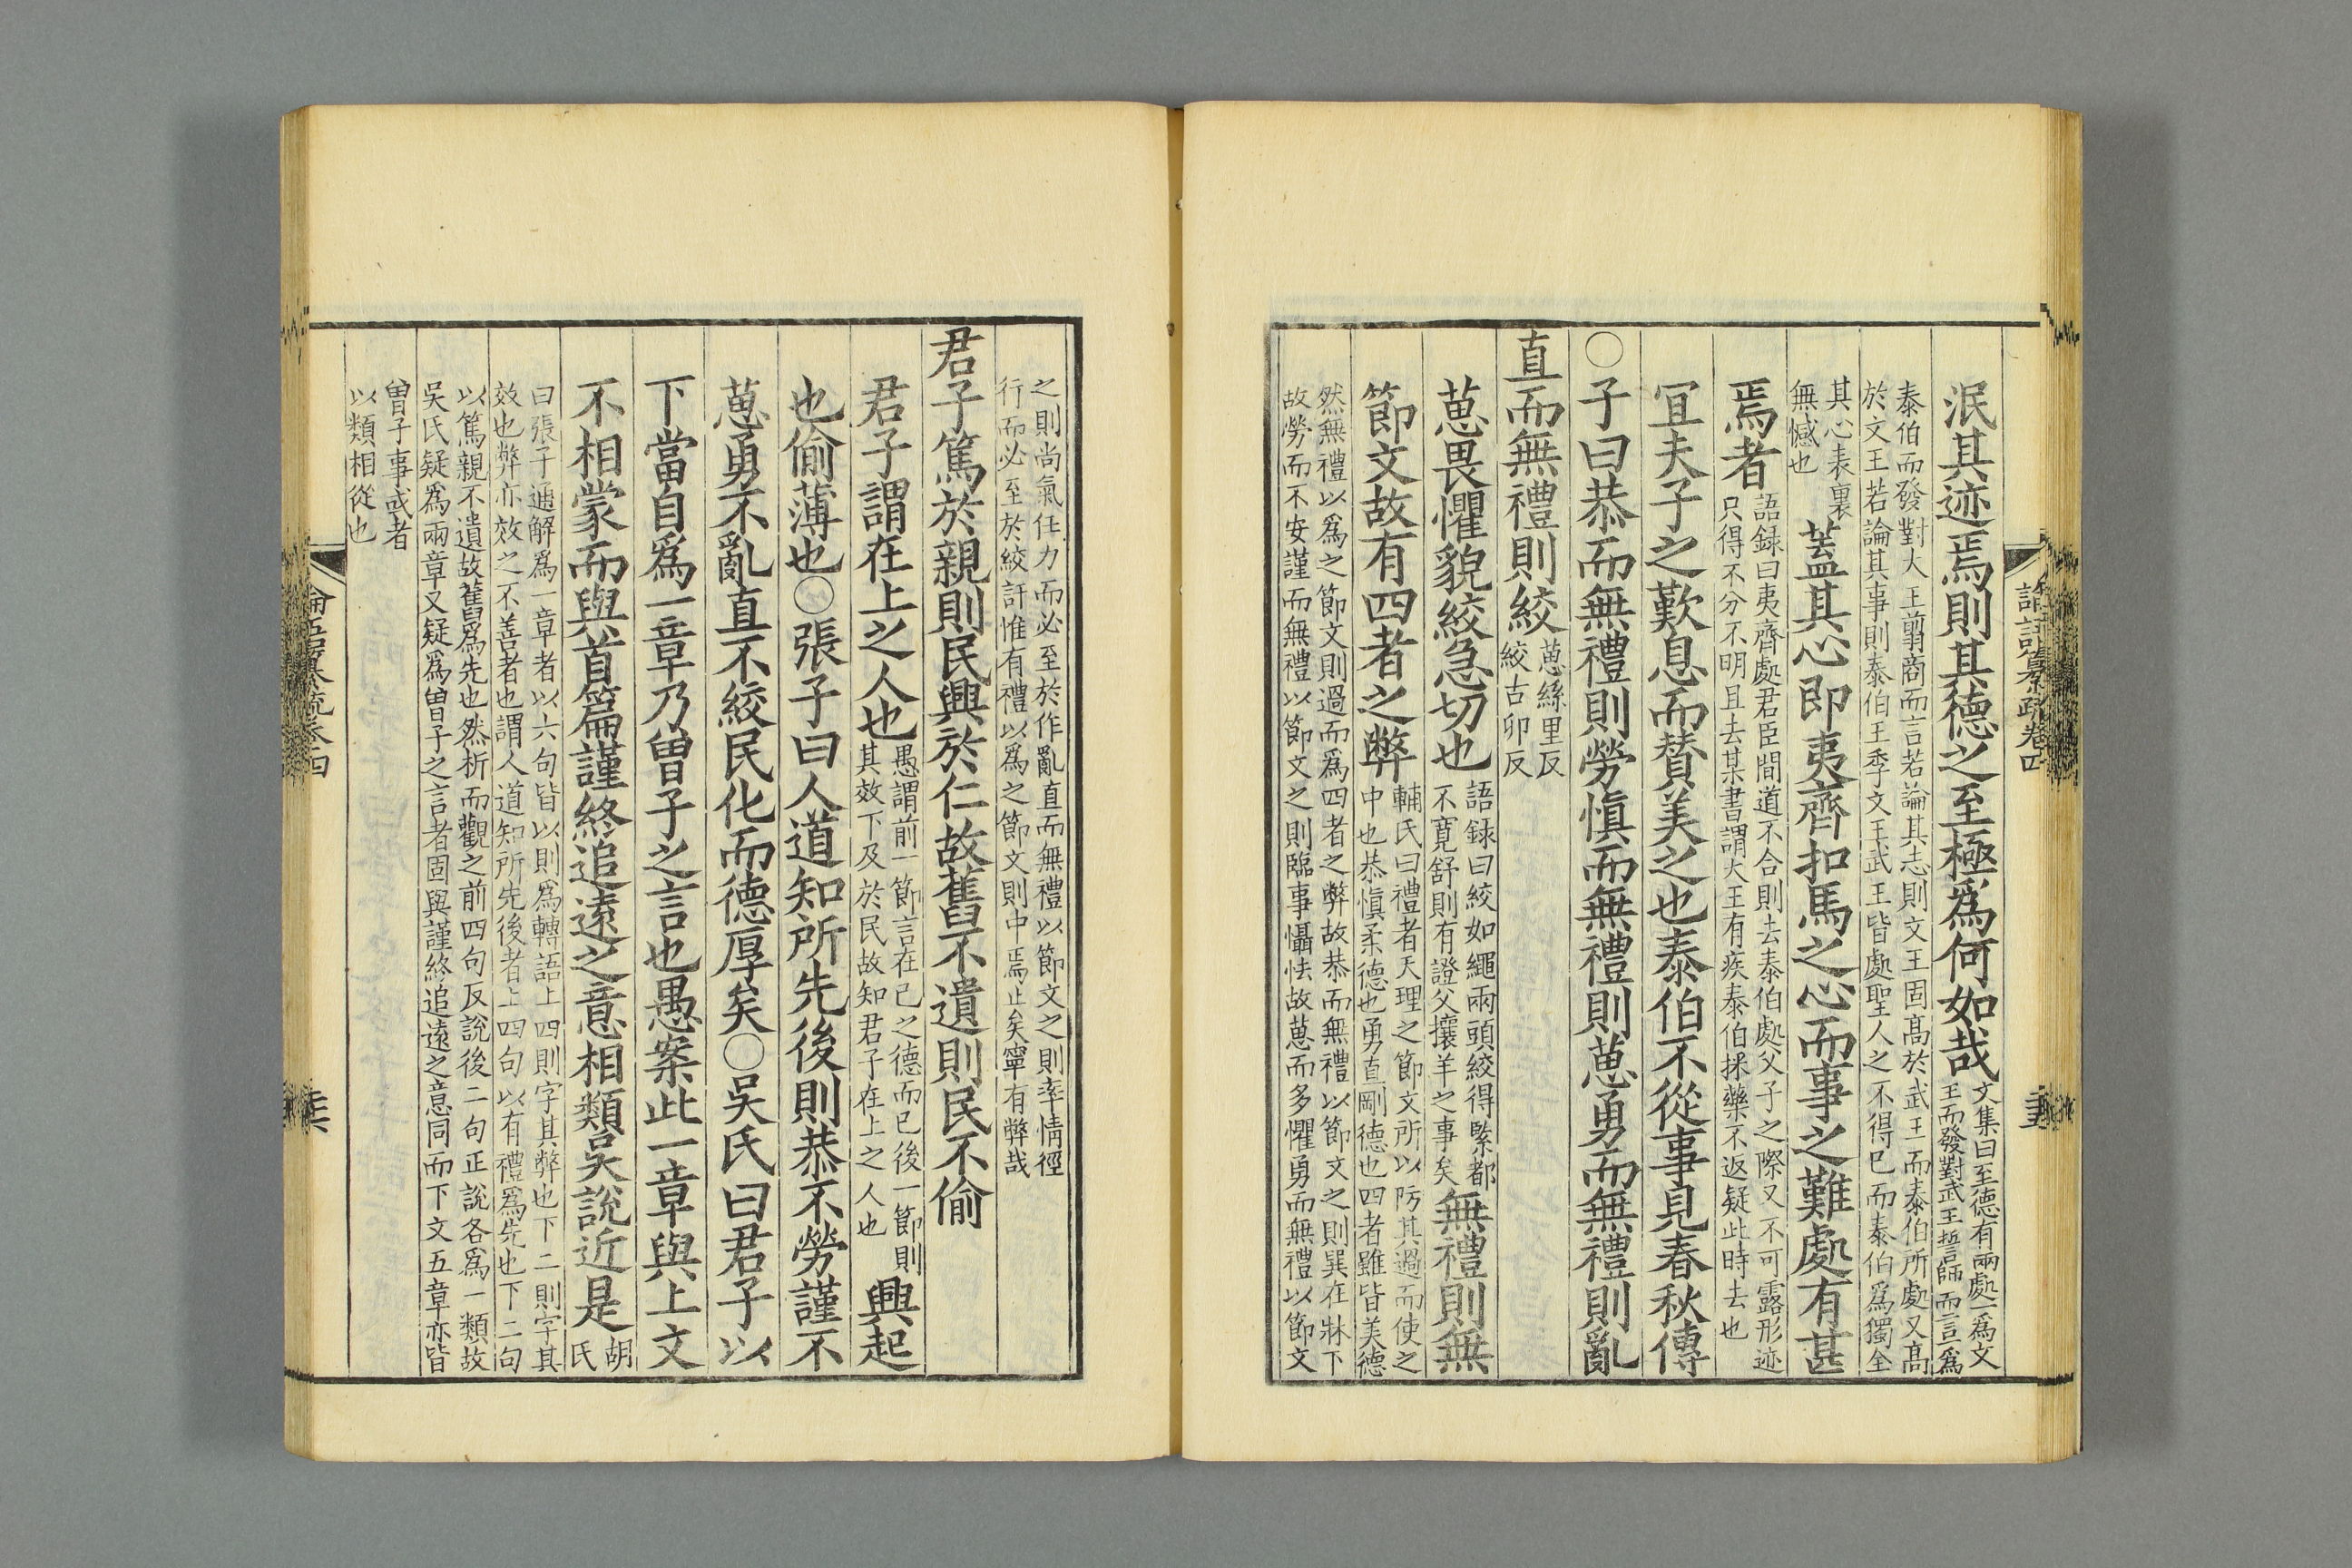 泯其迹焉則其德之至極爲何如哉文集曰至德有兩處一爲文
王而發對武王誓師而言一爲
泰伯而發對大王翦商而言若論其志則文王固髙於武王而泰伯所處又髙
於文王若論其事則泰伯王季文王武王皆處聖人之不得已而泰伯爲獨全
其心表裏
無憾也
蓋其心即夷齊扣馬之心而事之難處有甚
焉者語録曰夷齊處君臣間道不合則去泰伯處父子之際又不可露形迹
只得不分不明且去某書謂大王有疾泰伯採藥不返疑此時去也
冝夫子之歎息而賛美之也泰伯不從事見春秋傳
○子曰恭而無禮則勞慎而無禮則葸勇而無禮則亂
直而無禮則絞葸絲里反
絞古卯反
葸畏懼貌絞急切也語録曰絞如繩兩頭絞得緊都
不寛舒則有證父攘羊之事矣
無禮則無
節文故有四者之弊輔氏曰禮者天理之節文所以防其過而使之
中也恭慎柔德也勇直剛德也四者雖皆美德
然無禮以爲之節文則過而爲四者之弊故恭而無禮以節文之則巽在牀下
故勞而不安謹而無禮以節文之則臨事懾怯故葸而多懼勇而無禮以節文
之則尚氣任力而必至於作亂直而無禮以節文之則率情徑
行而必至於絞訐惟有禮以爲之節文則中焉止矣寧有弊哉
君子篤於親則民興於仁故舊不遺則民不偷
君子謂在上之人也愚謂前一節言在己之德而已後一節則
其效下及於民故知君子在上之人也
興起
也偷薄也○張子曰人道知所先後則恭不勞謹不
葸勇不亂直不絞民化而德厚矣○吴氏曰君子以
下當自爲一章乃曾子之言也愚案此一章與上文
不相蒙而與首篇謹終追逺之意相類吴說近是胡
氏
曰張子通解爲一章者以六句皆以則爲轉語上四則字其弊也下二則字其
效也弊亦效之不善者也謂人道知所先後者上四句以有禮爲先也下二句
以篤親不遺故舊爲先也然析而觀之前四句反說後二句正說各爲一類故
吴氏疑爲兩章又疑爲曾子之言者固與謹終追逺之意同而下文五章亦皆
曾子事或者
以類相從也
論語纂疏卷四